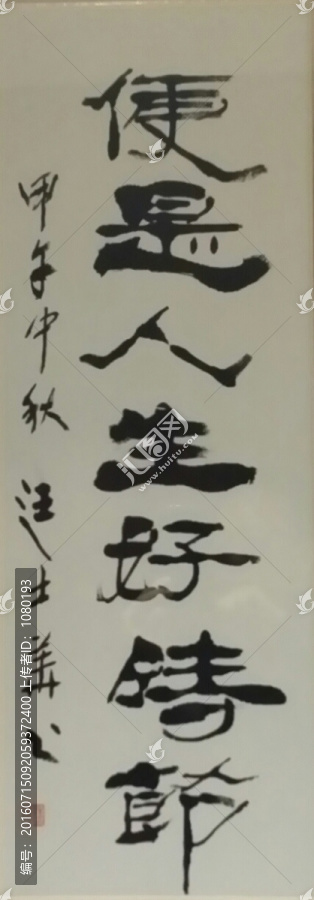 便是人生好時節
甲午中秋 汪士華书
汇图网
www.huitu.com
编号:20160715092059372400 上传者ID:1080193